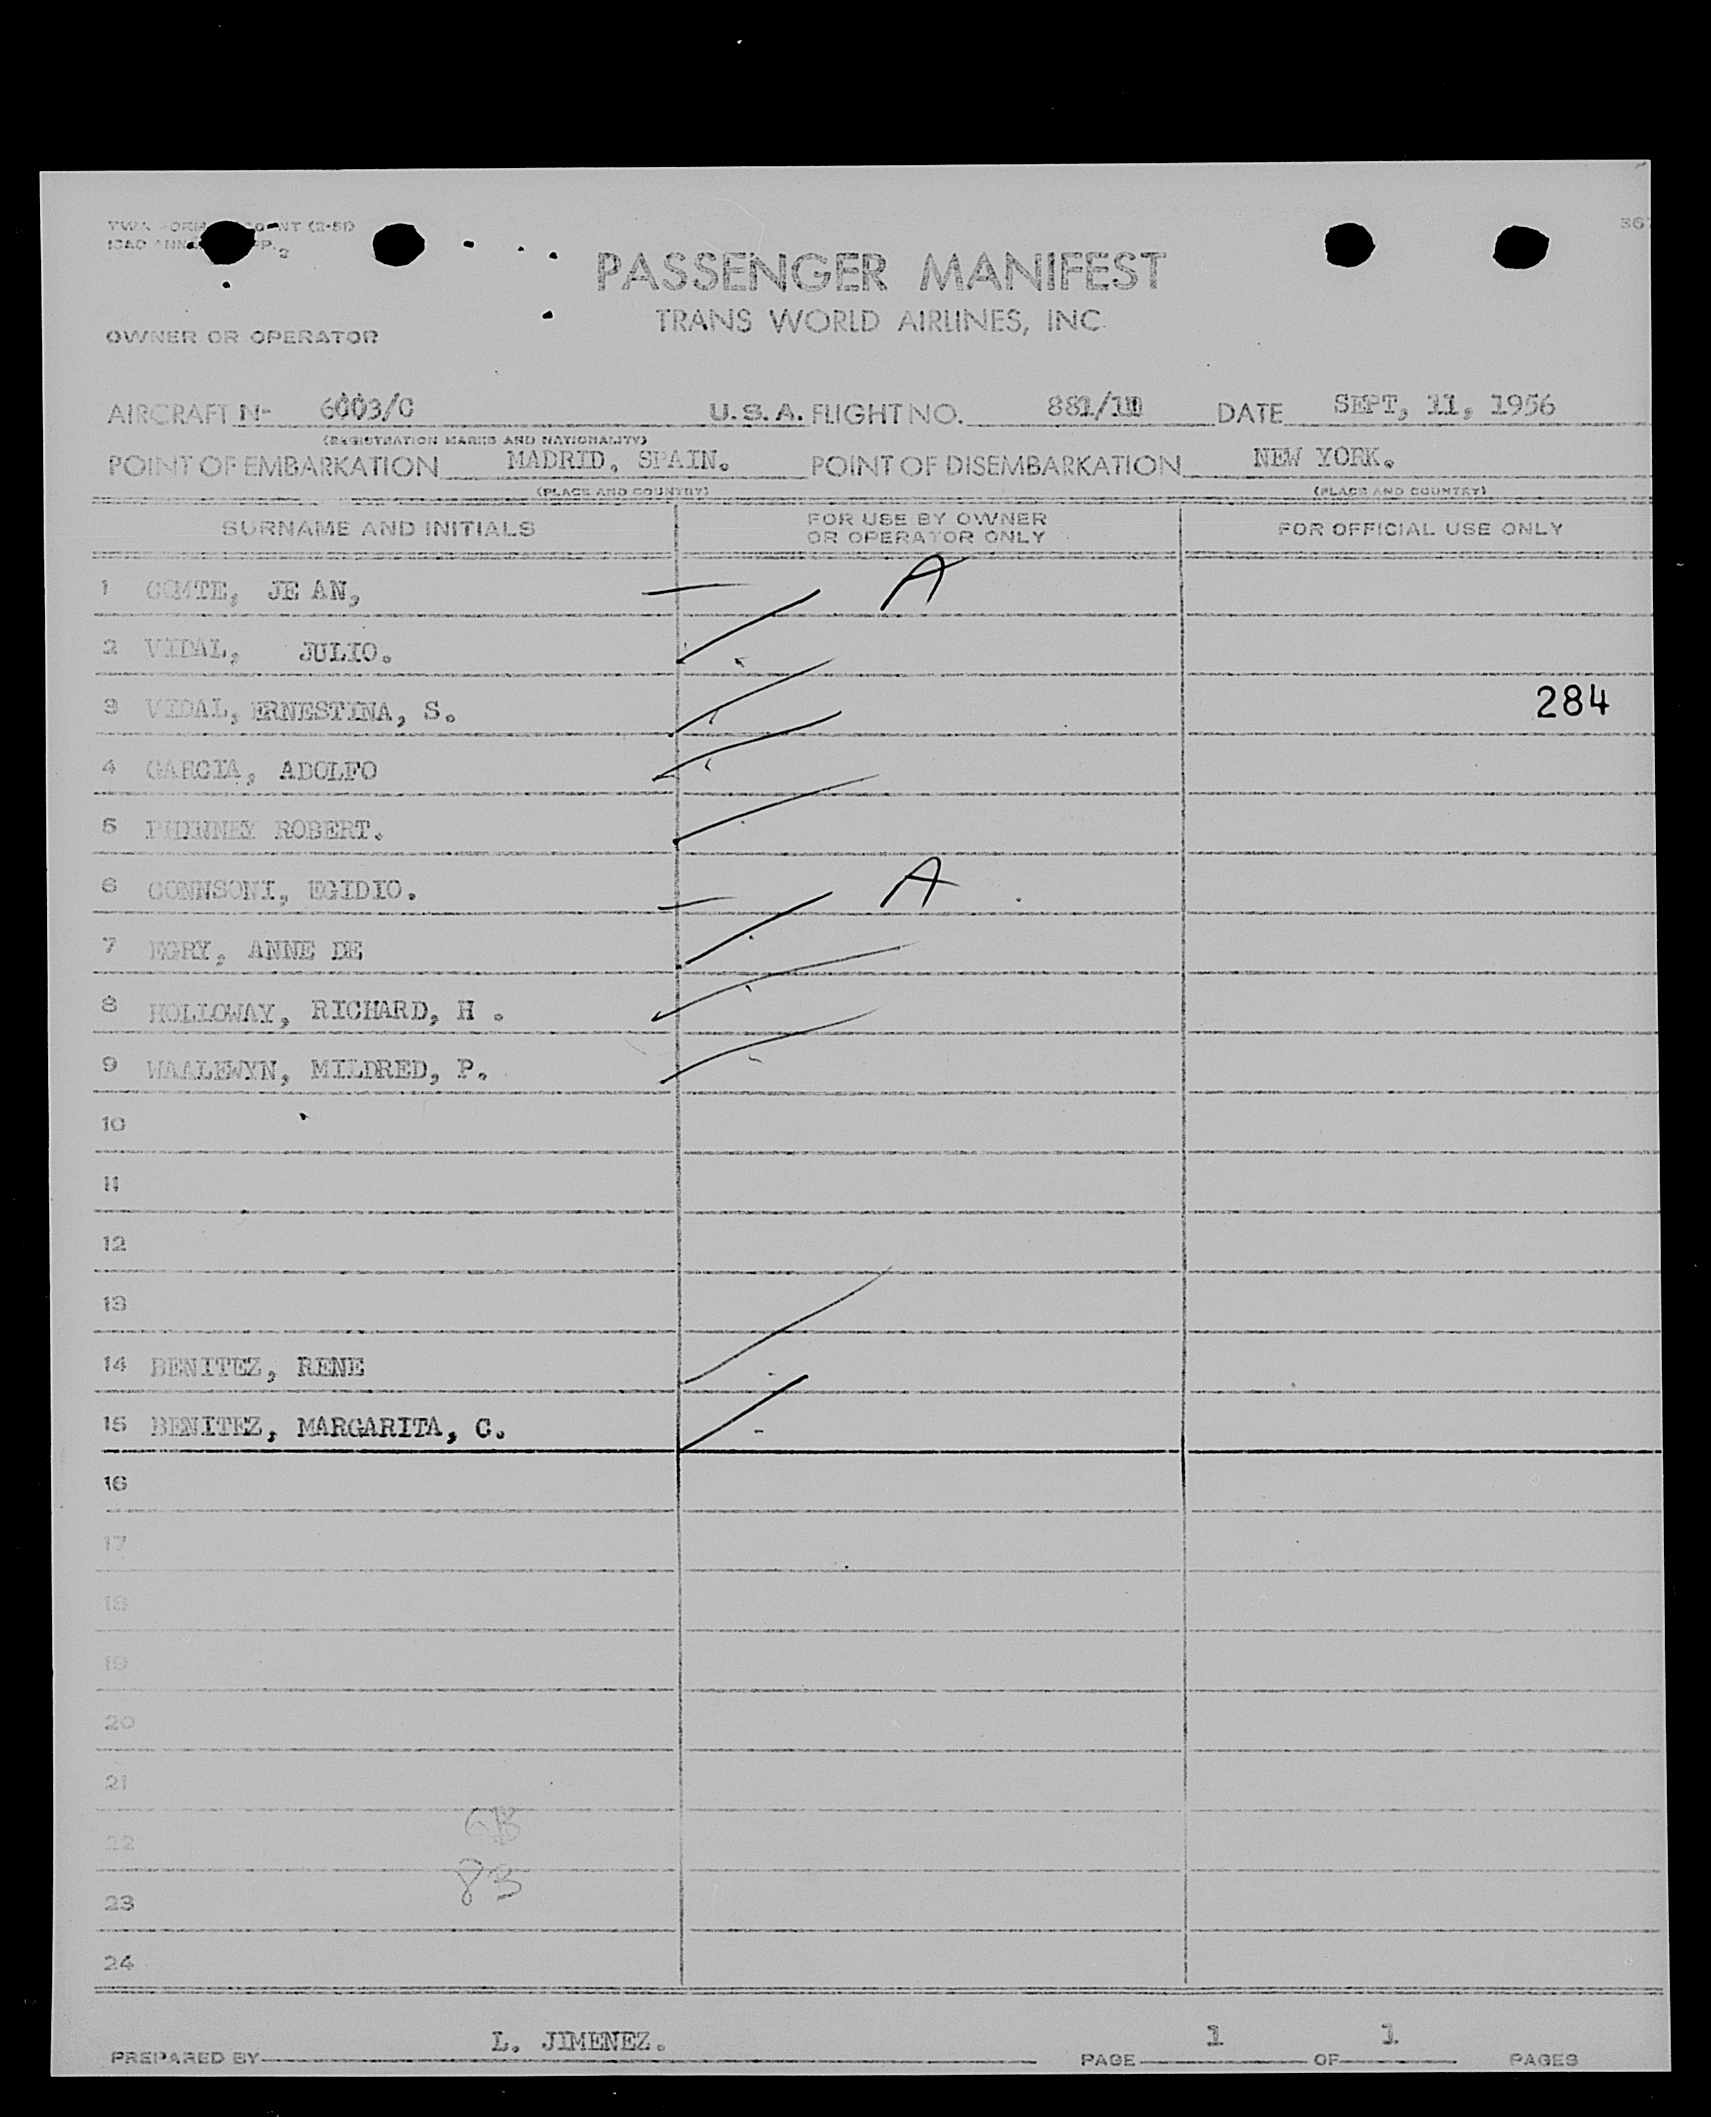 PASSENGER MANIFEST
TRANS WORLD AIRLINES, INC.
OWNER OR OPERATOR
AIRCRAFT N- 6003/C U.S.A. FLIGHT NO. 881/ DATE SEPT, 11, 1956
(REGISTRATION MARKS AND NATIONALITY)
POINT OF EMBARKATION MADRID, SPAIN. POINT OF DISEMBARKATION NEW YORK.
(PLACE AND COUNTRY) (PLACE AND COUNTRY)
SURNAME AND INITIALS FOR USE BY OWNER OR OPERATOR ONLY FOR OFFICIAL USE ONLY
1 COMTE, JE AN, A
2 VIDAL, JULIO.
3 VIDAL, ERNESTINA, S. 284
4 GARCIA, ADOLFO
5 ROBERT.
6 CONNSONI, EGIDIO. A
7 EGRY, ANNE DE
8 HOLLOWAY, RICHARD, H .
9 WAALEWYN, MILDRED, P.
10
11
12
13
14 BENITEZ, RENE
15 BENITEZ, MARGARITA, C.
16
17
18
19
20
21
22
23
24
PREPARED BY L. JIMENEZ. PAGE 1 OF 1 PAGES